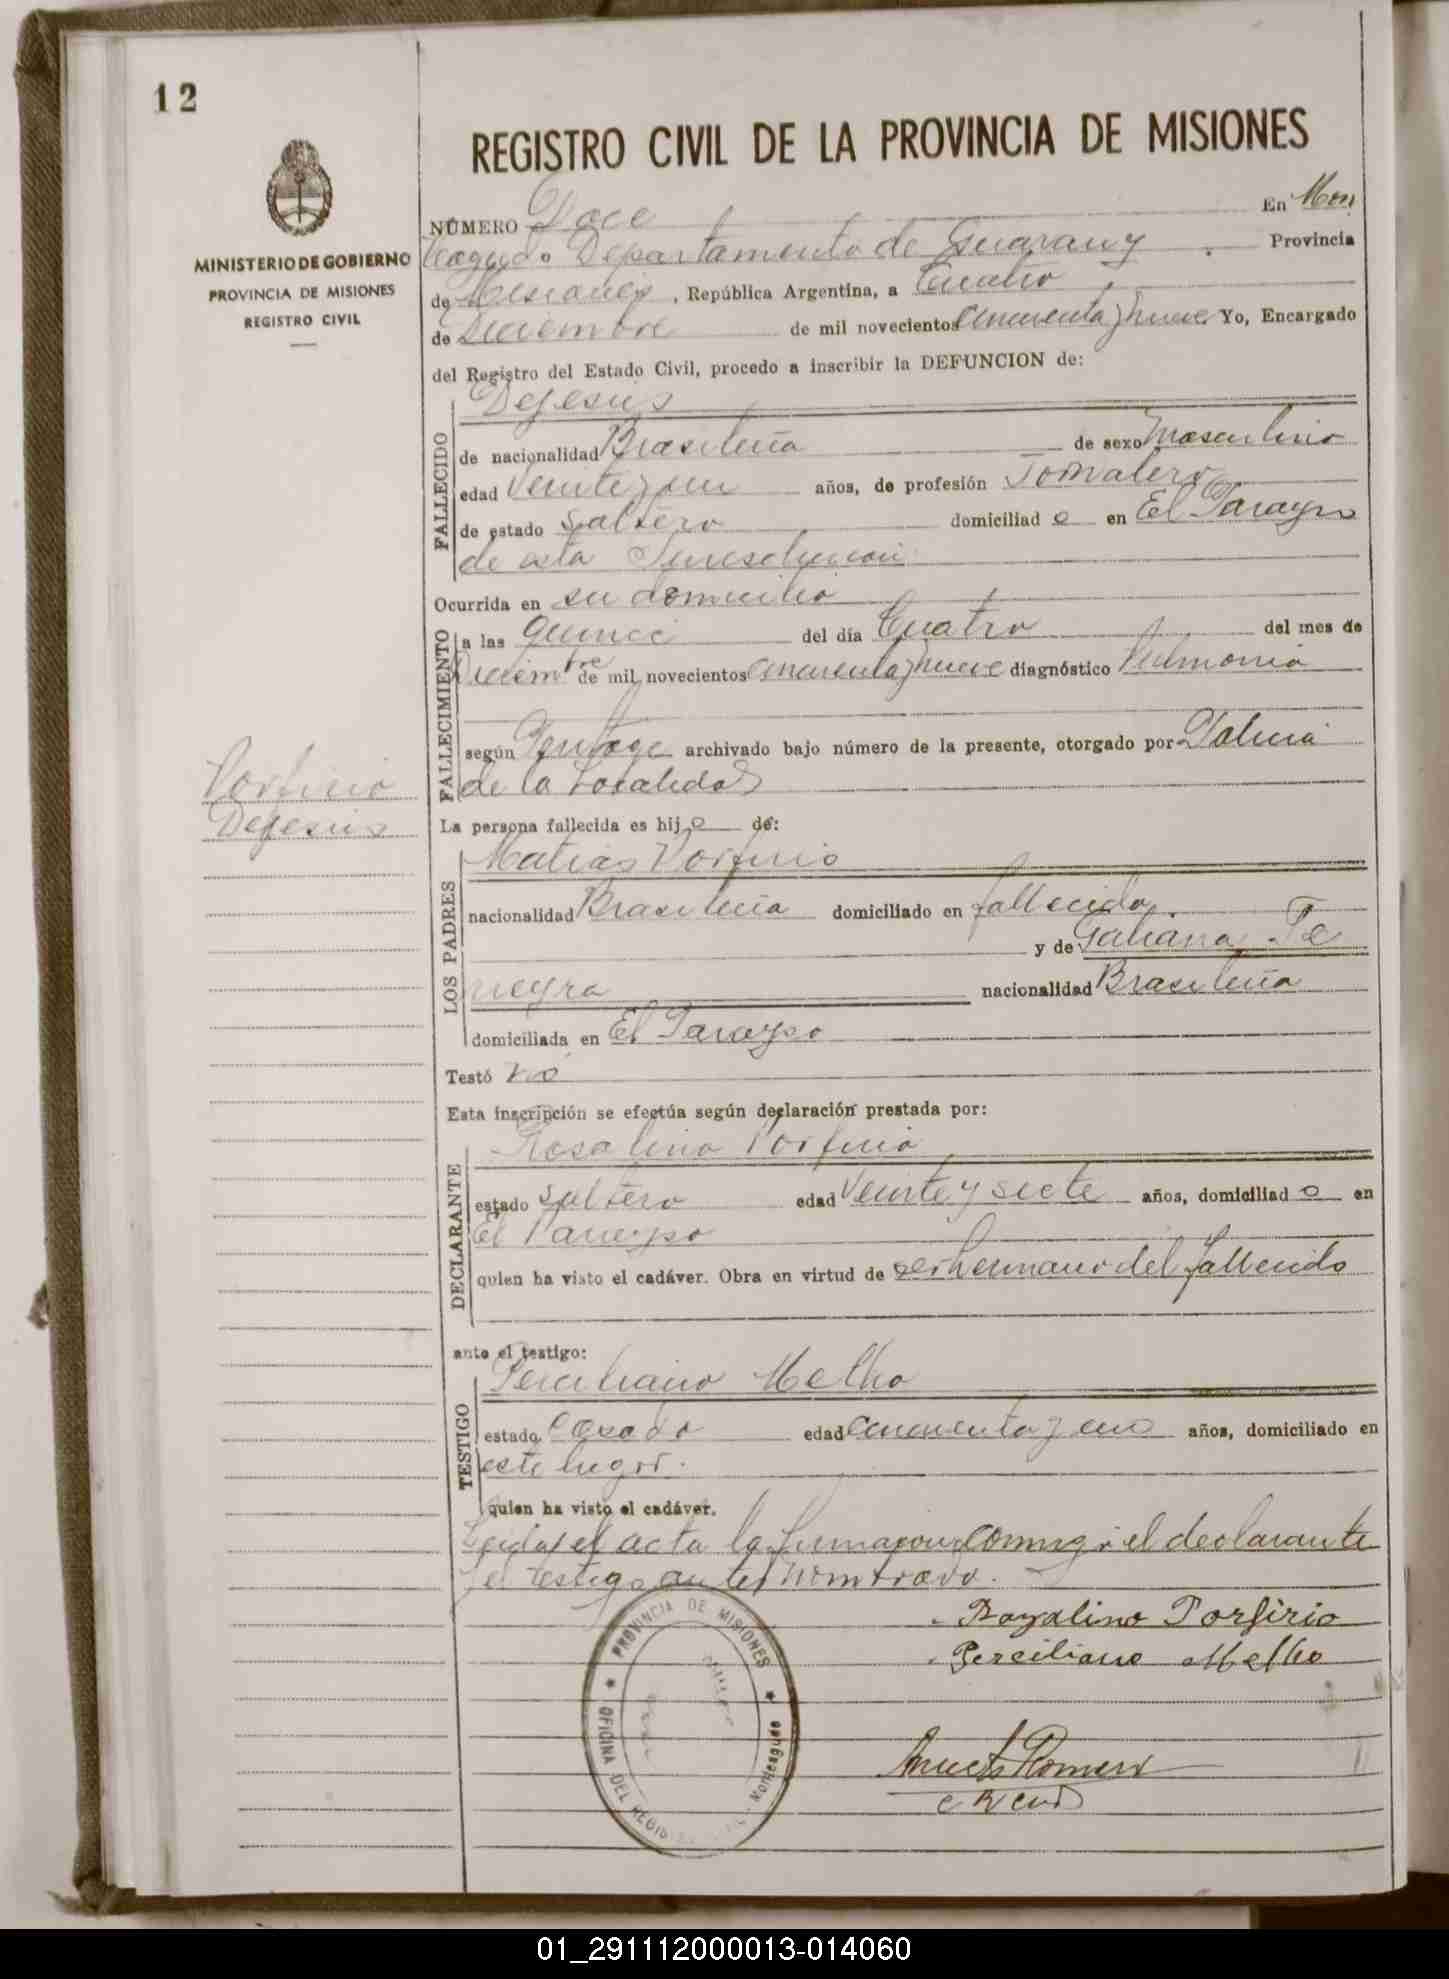 12
REGISTRO CIVIL DE LA PROVINCIA DE MISIONES
MINISTERIO DE GOBIERNO
PROVINCIA DE MISIONES
REGISTRO CIVIL
NÚMERO Doce En Mon
teagudo Departamento de Guarany. Provincia
de Misiones, República Argentina, a Cuatro
de Diciembre de mil novecientos cincuenta y nueve Yo, Encargado
del Registro del Estado Civil, procedo a inscribir la DEFUNCION de:
Dejesús
FALLECIDO
de nacionalidad Brasileña de sexo Masculino
edad Veinte y un años, de profesión Jornalero
de estado Saltero domiciliad o en El Parayso
de esta
Ocurrida en su domicilio
FALLECIMIENTO
a las quince del día Cuatro del mes de
Diciembre de mil novecientos cincuenta y nueve diagnóstico Pulmonia
según archivado bajo número de la presente, otorgado por Policia
de la Localidad
Porfirio
Dejesús
La persona fallecida es hij o de:
LOS PADRES
Matias Porfirio
nacionalidad Brasileña domiciliado en fallecido.
y de
negra nacionalidad Brasileña
domiciliada en El Parayso
Testó no
Esta inscripción se efectúa según declaración prestada por:
DECLARANTE
Rosalino Porfirio
estado Saltero edad Veinte y siete años, domiciliad o en
El Parayso
quien ha visto el cadáver. Obra en virtud de ser hermano del fallecido
ante el testigo:
TESTIGO
Perciliano Melho
estado Casado edad cincuenta y uno años, domiciliado en
este lugar.
quien ha visto el cadáver.
Leida el acta la firmaron conmigo el declarante
y el testigo antes nombrado.
Rozalino Porfirio
Perciliano Melho
Romero
PROVINCIA DE MISIONES
OFICINA DEL REGISTRO CIVIL - Monteagudo
01_291112000013-014060